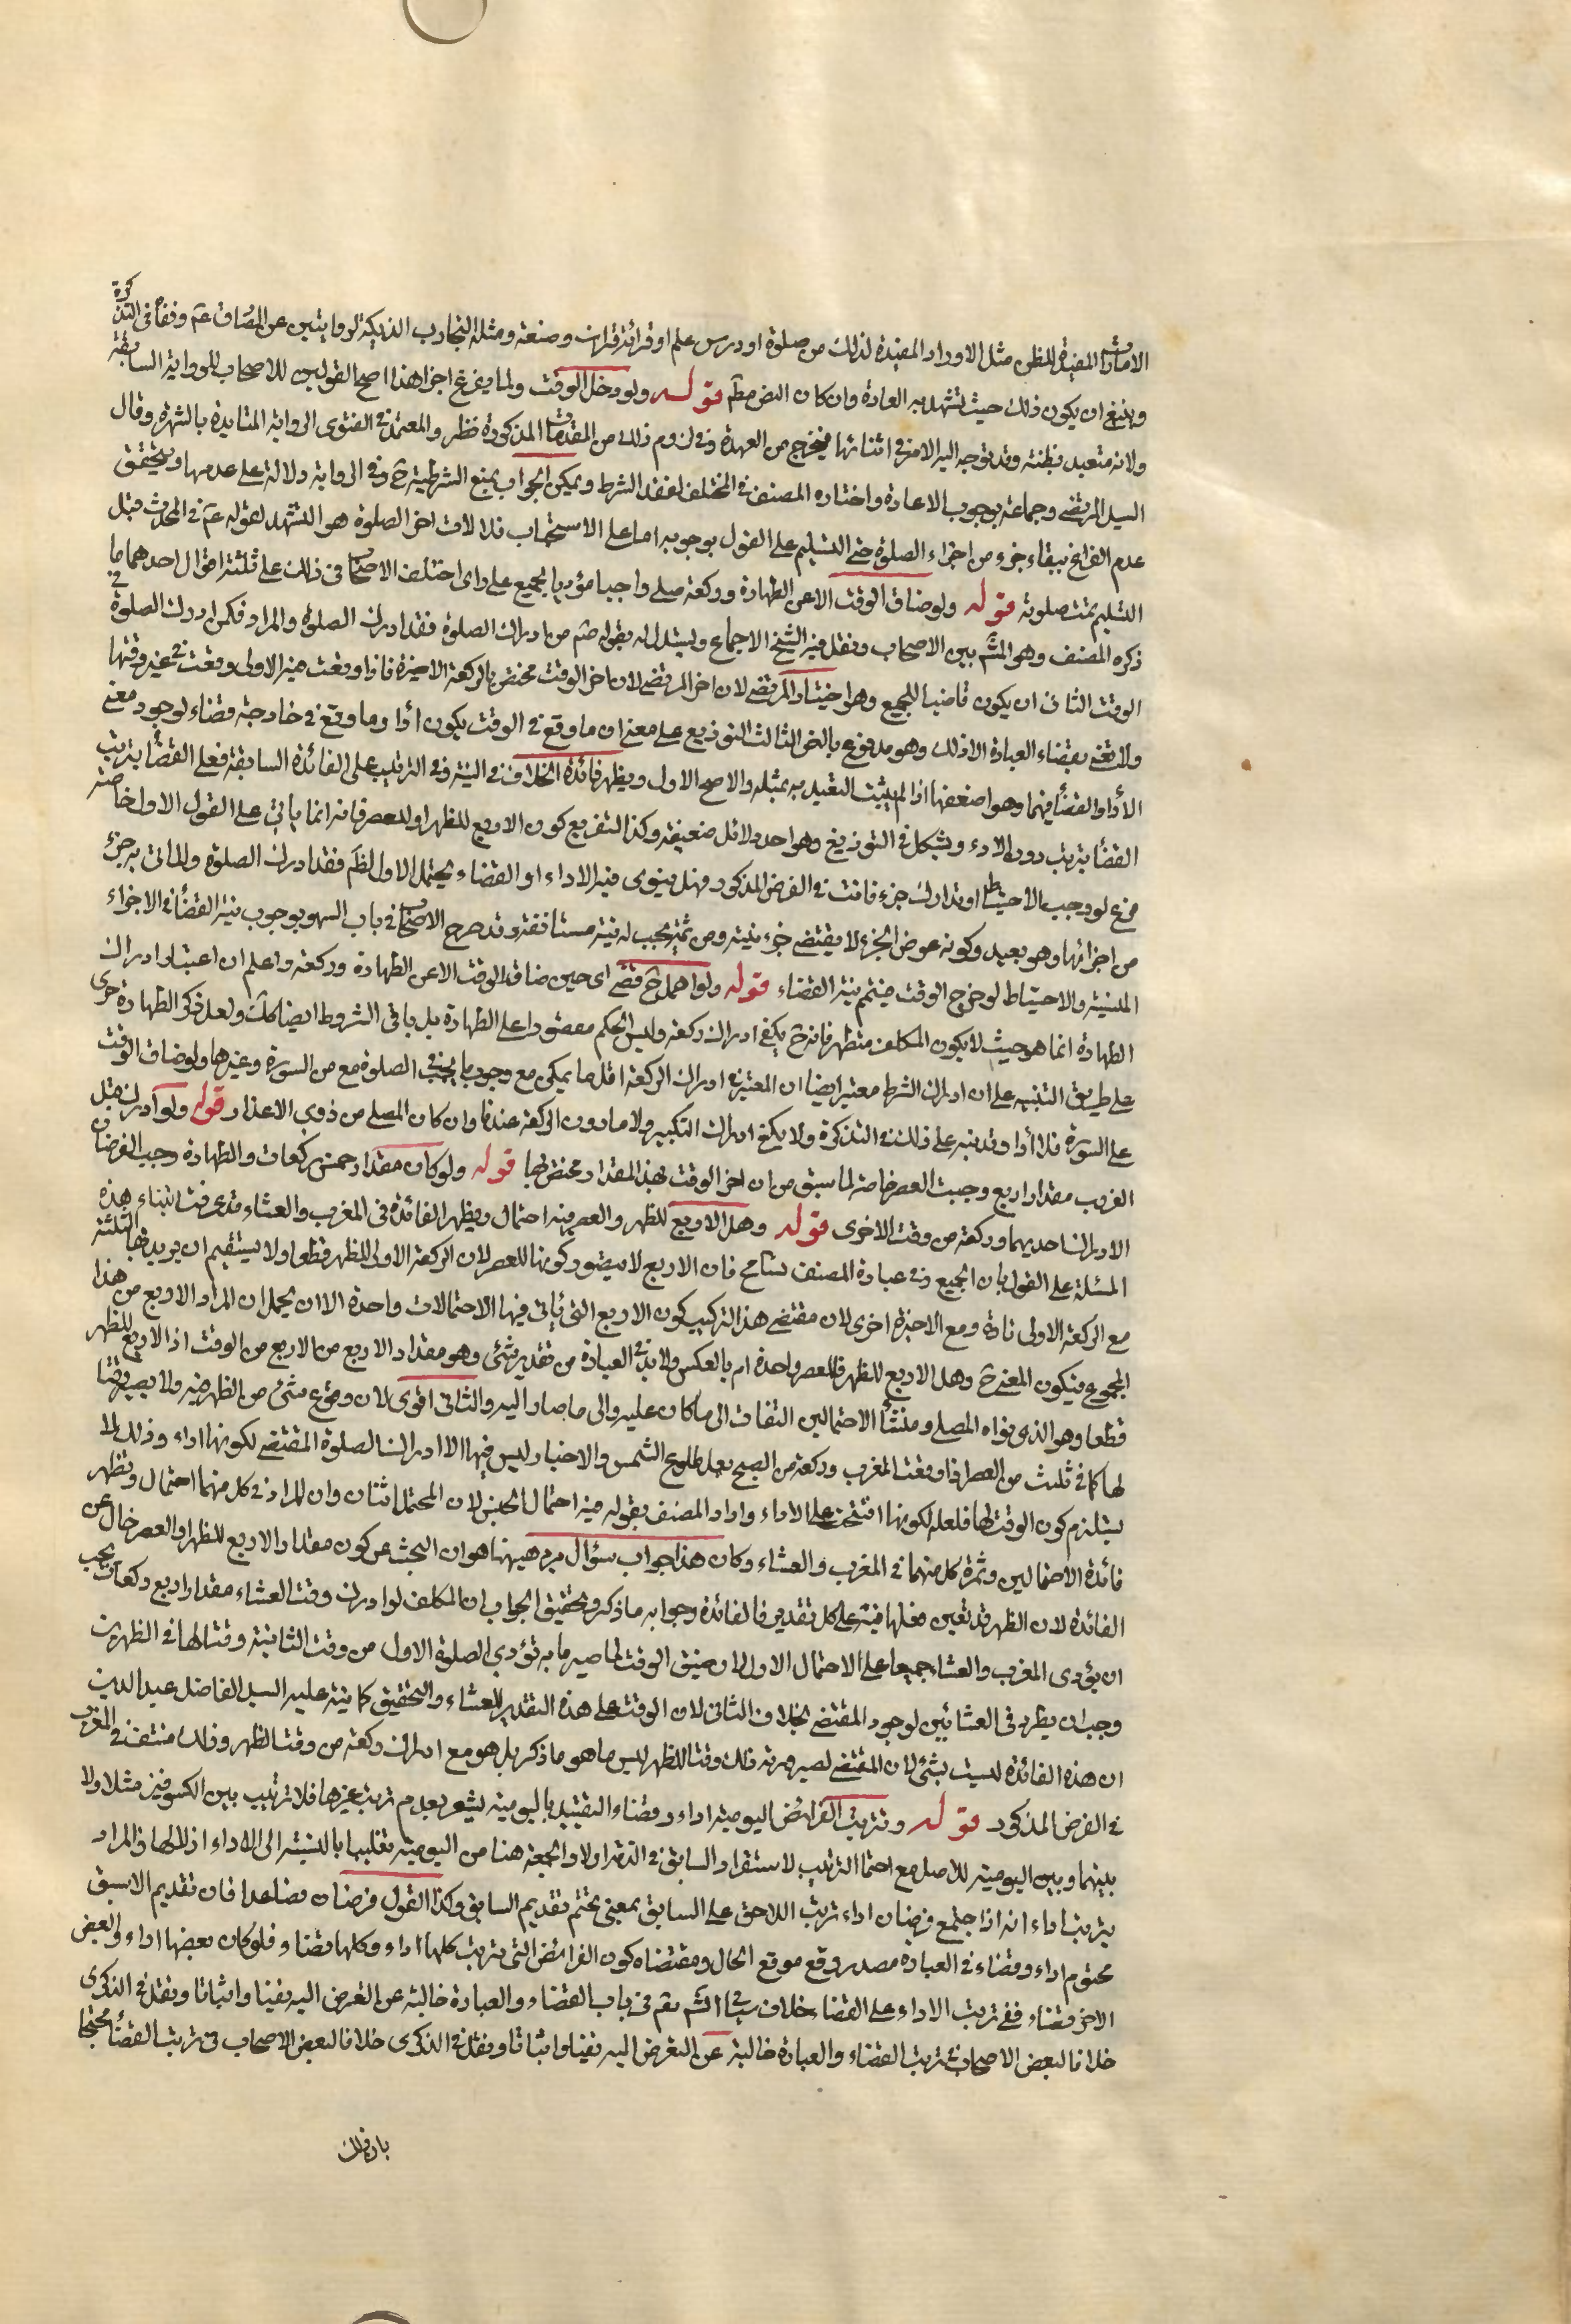 الامارات المفيدة للظن مثل الاوراد المفيدة لذلك من صلوة او درس علم او قرائة قران وصنعة ومثله التجارب الديكة لروايتين عن الصادق عم وفقا في التذكرة
وينبغي ان يكون ذلك حيث تشهد به العادة وان كان النص مطم قوله ولو دخل الوقت ولما يفرغ اجزا هذا اصح القولين للاصحاب للرواية السابقة
ولانه متعبد بظنه وقد توجه اليه الامر في اثنائها فيخرج من العهدة وفي لزوم ذلك من المقدمات المذكورة نظر والمعتمد في الفتوى الرواية المتايدة بالشهرة وقال
السيد المرتضى وجماعة بوجوب الاعادة واختاره المصنف في المختلف لفقد الشرط ويمكن الجواب بمنع الشرطية ح وفي الرواية دلالة على عدمها ويتحقق
عدم الفراغ ببقاء جزء من اجزاء الصلوة حتى التسليم على القول بوجوبه اما على الاستحباب فلا لان اخر الصلوة هو التشهد لقوله عم في المحدث قبل
التسليم تمت صلوته قوله ولو ضاق الوقت الا عن الطهارة وركعة صلى واجبا مؤديا للجميع على راى اختلف الاصحاب في ذلك على ثلثة اقوال احدهما ما
ذكره المصنف وهو المش بين الاصحاب ونقل فيه الشيخ الاجماع ويستدل له بقوله صم من ادرك الصلوة فقد ادرك الصلوة والمراد فكمن ادرك الصلوة في
الوقت الثاني ان يكون قاضيا للجميع وهو اختيار المرتضى لان اخر الوقت مختص بالركعة الاخيرة فاذا وقعت فيه الاولى وقعت في غير وقتها
ولا نعني بقضاء العبادة الا ذلك وهو مدفوع بالخبر الثالث التوزيع على معنى ان ما وقع في الوقت يكون اداء وما وقع في خارجه قضاء لوجود معنى
الأداء والقضاء فيهما وهو اضعفها اذ لم يثبت التعبد به بمثله والاصح الاول ويظهر فائدة الخلاف في النية وفي الترتيب على الفائدة السابقة فعلى القضاء يترتب
القضاء يترتب دون الاداء ويشكل في التوزيع وهو احد دلائل ضعيفة وكذا التفريع كون الاربع للظهر او للعصر فانه انما ياتي على القول الاول خاصة
فرع لو وجب الاحتياط او تدارك جزء فائت في الفرض المذكور فهل ينوى فيه الاداء او القضاء يحتمل الاول لظم فقد ادرك الصلوة والماتى به جزء
من اجزائها وهو بعيد وكونه عوض الجزء لا يقتضى جزء نيته ومن ثمة يجب له نية مستانفة وقد صرح الاصحاب في باب السهو بوجوب نية القضاء في الاجزاء
المنسية والاحتياط لو خرج الوقت فيتم بنية القضاء قوله ولو اهمل ح قضى اى حين ضاق الوقت الا عن الطهارة وركعة واعلم ان اعتبار ادراك
الطهارة انما هو حيث لا يكون المكلف متطهر فانه ح يكفي ادراك ركعة وليس الحكم مقصورا على الطهارة بل باقى الشروط ايضا كك ولعل ذكر الطهارة جرى
على طريق التنبيه على ان ادراك الشرط معتبر ايضا ان المعتبر في ادراك الركعة اقل ما يمكن مع وجود ما يجب في الصلوة مع من السورة وغيرها ولو ضاق الوقت
على السورة فلا اداء وقد نبه على ذلك في التذكرة ولا يكفي ادراك التكبير ولا ما دون الركعة عندنا وان كان المصلى من ذوى الاعذار قوله ولو ادرك قبل
الغروب مقدار اربع وجبت العصر خاصة لما سبق من ان اخر الوقت بهذا المقدار مختص بها قوله ولو كان مقدار خمس ركعات والطهارة وجب الفرضان
الادراك احديهما وركعة من وقت الاخرى قوله وهل الاربع للظهر او للعصر فيه احتمال ويظهر الفائدة في المغرب والعشاء قد عرفت ابتناء هذه
المسئلة على القول بان الجميع وفي عبارة المصنف تسامح فان الاربع لا يتصور كونها للعصر لان الركعة الاولى للظهر قطعا ولا يستقيم ان يريد بها الثلثة
مع الركعة الاولى تارة ومع الاخيرة اخرى لان مقتضى هذا التركيب كون الاربع التى يأتى فيها الاحتمالات واحدة الا ان يحمل ان المراد الاربع من هذا
المجموع فيكون المعنى ح وهل الاربع للظهر والعصر واحدة ام بالعكس ولابد في العبارة من تقدير شئ وهو مقدار الاربع من الاربع من الوقت اذ الاربع للظهر
قطعا وهو الذى نواه المصلى ومنشأ الاحتمالين التفات الى ما كان عليه والى ما صار اليه والثانى اقوى لان وقوع شئ من الظهر فيه ولا يصير وقتا
لها كما في ثلث من العصر اذا وقعت المغرب وركعة من الصبح بعد طلوع الشمس والاخبار ليس فيها الا ادراك الصلوة المقتضى لكونها اداء وذلك لا
يستلزم كون الوقت لها فلعله لكونها افتتحت على الاداء واراد المصنف بقوله فيه احتمال الجنس لان المحتمل اثنان وان المراد في كل منهما احتمال وتظهر
فائدة الاحتمالين وثمرة كل منهما في المغرب والعشاء وكان هذا جواب سؤال يرد هيهنا هو ان البحث عن كون مقدار الاربع للظهر او العصر خال عن
الفائدة لان الظهر قد تعين فعلها فيه على كل تقدير فالفائدة وجوابه ما ذكر وتحقيق الجواب ان المكلف لو ادرك وقت العشاء مقدار اربع ركعات يجب
ان يؤدى المغرب والعشاء جميعا على الاحتمال الاول لان ضيق الوقت لما صير ما به تؤدى الصلوة الاولى من وقت الثانية وقتا لها في الظهرين
وجب ان يطرد في العشائين لوجود المقتضى بخلاف الثانى لان الوقت على هذه التقدير للعشاء والتحقيق كما نبه عليه السيد الفاضل عميد الدين
ان هذه الفائدة ليست بشئ لان المقتضى لصيرورته ذلك وقتا للظهر ليس ما هو ما ذكر بل هو مع ادراك ركعة من وقت الظهر وذلك منتف في المغرب
في الفرض المذكور قوله وترتيب الفرائض اليومية اداء وقضاء التقييد باليومية يشعر بعدم ترتيب غيرها فلا ترتيب بين الكسوفين مثلا ولا
بينهما وبين اليومية للاصل مع احتمال الترتيب لاستقرار السابق في الذمة اولا والجمعة هنا من اليومية تغليبا بالنسبة الى الاداء اذ لا لها والمراد
بترتيب اداء انه اذا اجتمع فرضان اداء ترتيب اللاحق على السابق بمعنى تحتم تقديم السابق وكذا القول فرضان فصاعدا فان تقديم الاسبق
محتوم اداء وقضاء في العبادة مصدر وقع موقع الحال ومقتضاه كون الفرائض التى يترتب كلها اداء وكلها قضاء فلو كان بعضها اداء والبعض
الاخر قضاء ففى ترتيب الاداء على القضاء خلاف ياتى في باب القضاء والعبادة خالية عن التعرض اليه نفيا واثباتا ونقل في الذكرى
خلافا لبعض الاصحاب في ترتيب القضاء والعبادة خالية عن التعرض اليه نفيا واثباتا ونقل في الذكرى خلافا لبعض الاصحاب في ترتيب القضاء محتجا